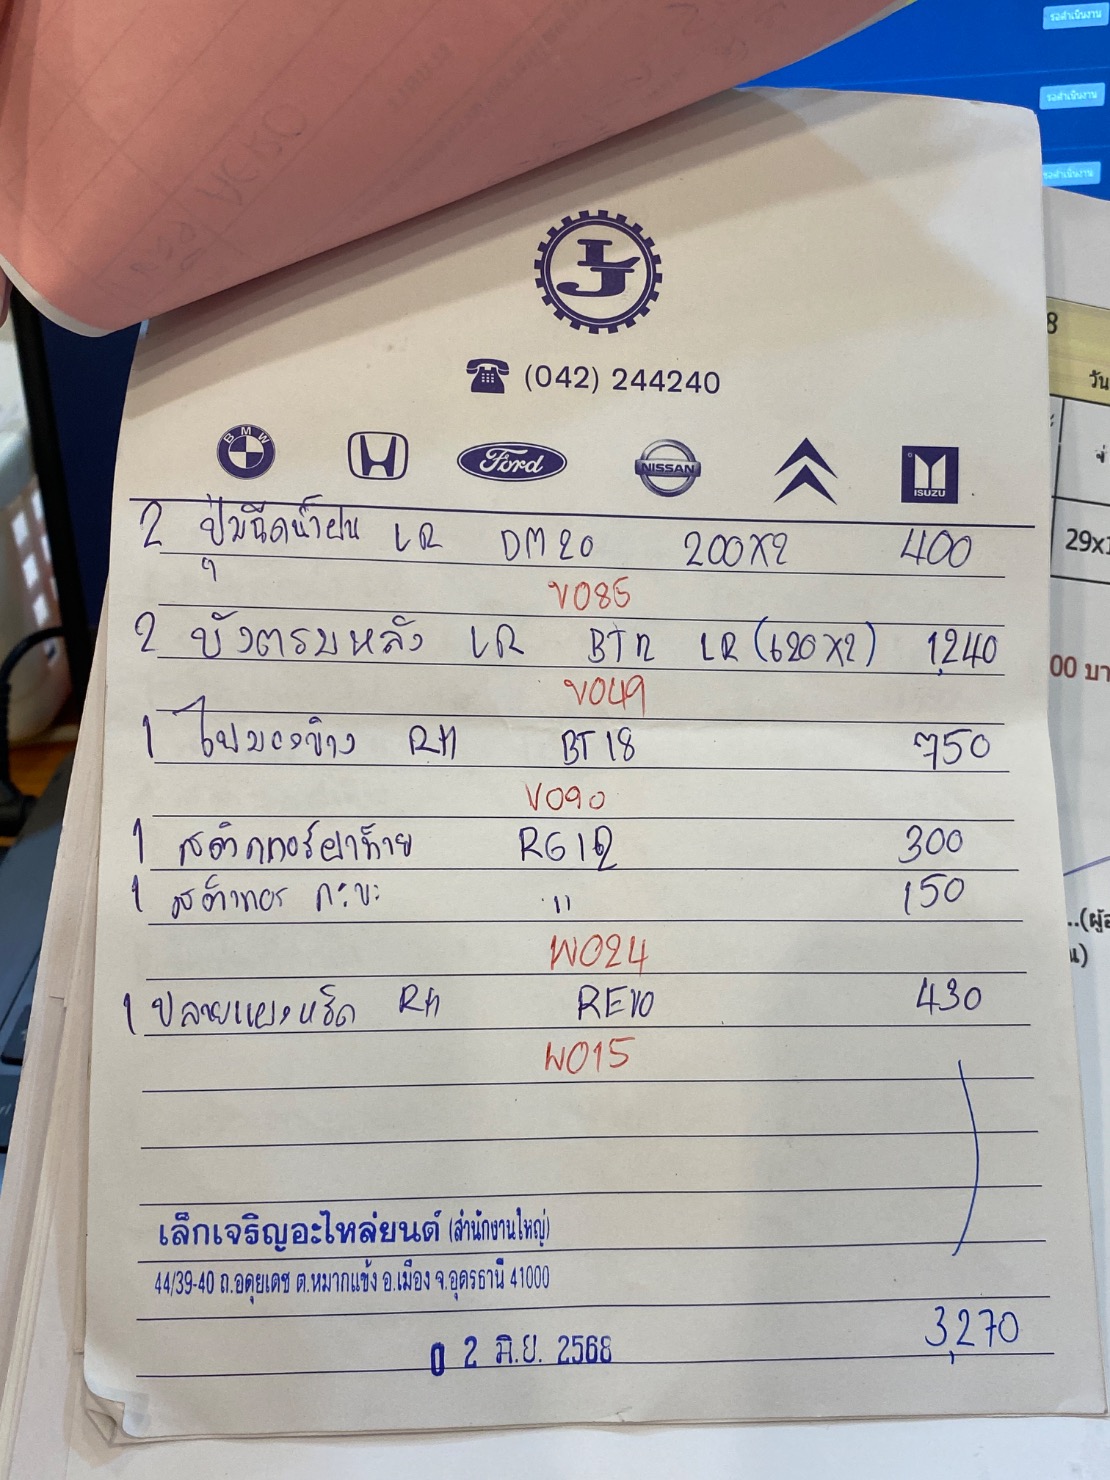 รอดำเนินงาน
รอดำเนินงาน
รอดำเนินงาน
LJ
(042) 244240
BMW Ford NISSAN ISUZU
2 ปุ่มฉีดน้ำฝน LR DM20 200X2 400
ๆ
V085
2 บังตรมหลัง LR BTN LR (620X2) 1,240
V049
1 ไฟมองข้าง RH BT18 750
V090
1 สติกเกอร์ฝาท้าย RG 300
1 กะบะ " 150
W024
1 ปลายแผงหรีด RH REVO 430
W015
เล็กเจริญอะไหล่ยนต์ (สำนักงานใหญ่)
44/39-40 ถ.อดุยเดช ต.หมากแข้ง อ.เมือง จ.อุดรธานี 41000
3,270
0 2 มิ.ย. 2568
8
วัน
29x1
00 บา
..(ผู้อ
น)